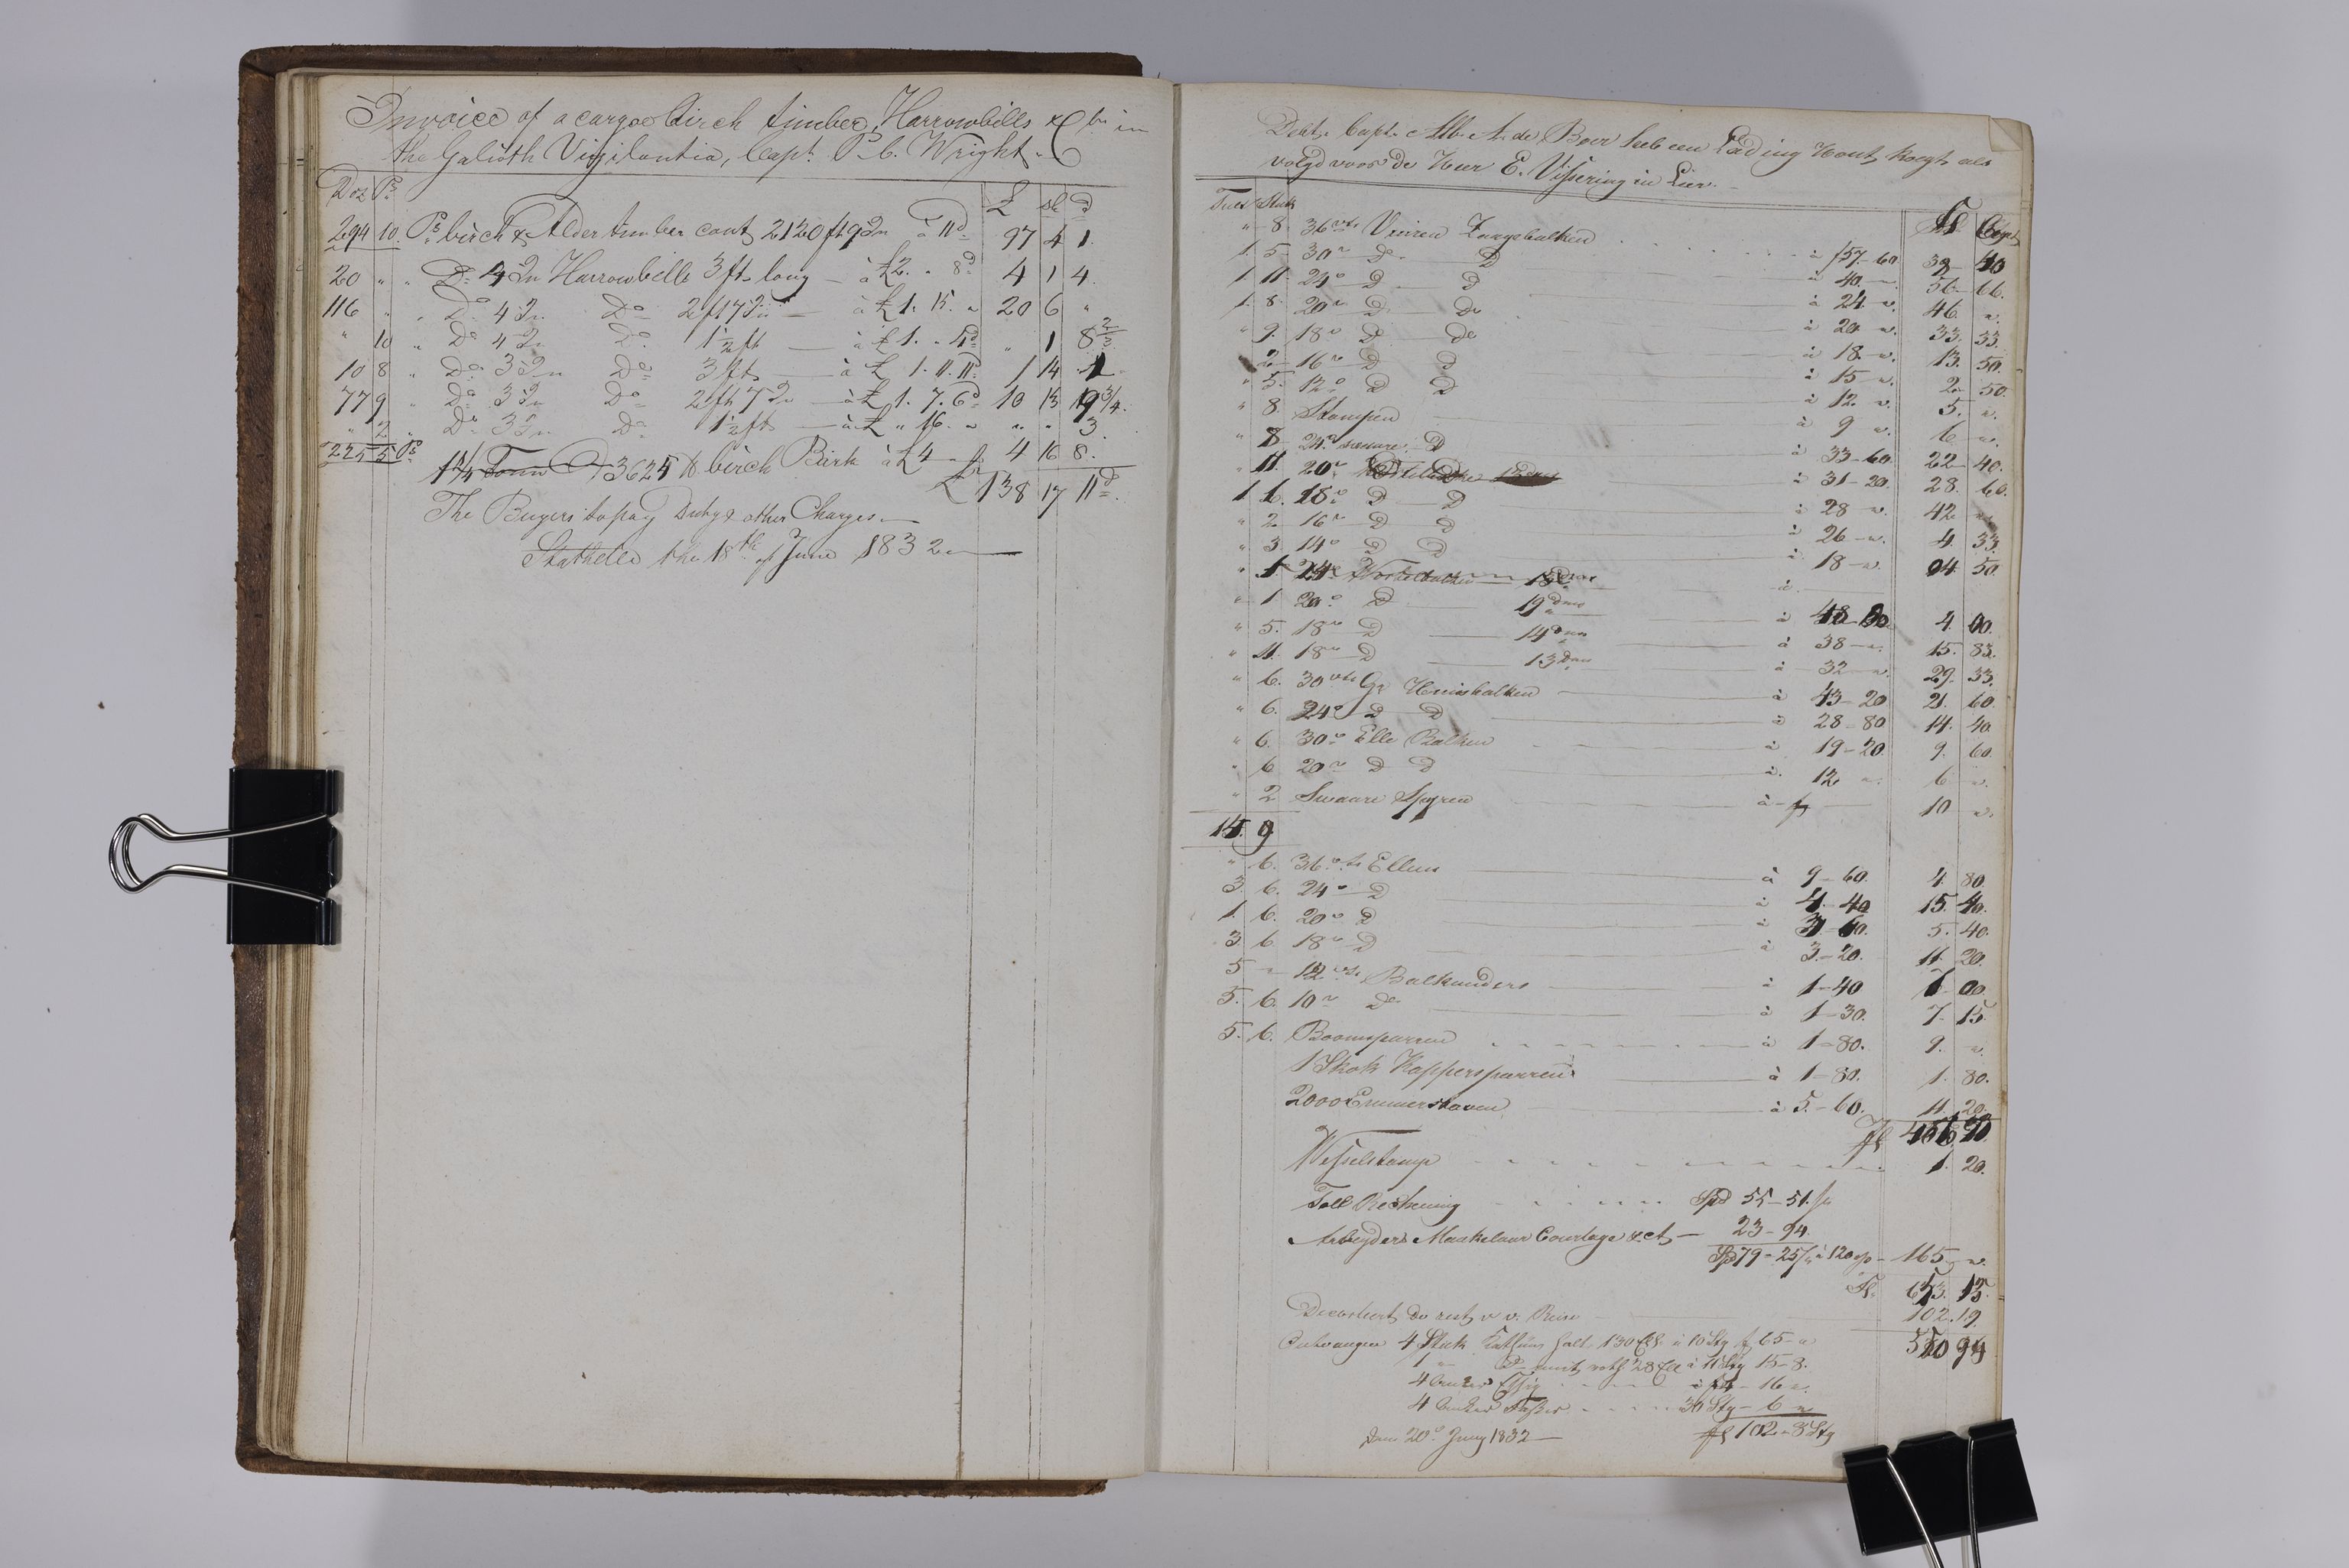 Invoice of a cargo birch timber, Harrowbills &c &c in
the Galioth Vigilantia, Capt. P. C. Wright.
Doz Ps £ sh d
294 10. Ps birch & Alder timber cont 2120 ft 9 In à 11d 97 4 1.
20 " " Do 4 In Harrowbills 3 ft long — à £2. " 8d 4 1 4.
116 " " Do 4 In Do 2 ft 7 In — à £1. 15. " 20 6 "
" 10 " Do 4 In Do 1½ ft — à £1. " " 1 8⅔
10 8 " Do 3 In Do 3 ft — à £ 1. 11. 11d 1 14 1
77 9 " Do 3 In Do 2 ft 7 In — à £1. 7. 6d 10 13 9¾.
" 2 " Do 3 In Do 1½ ft — à £ " 16. " " " 3
225 5 Ps
3625 lb birch Bark à £4 4 16 8.
£138 17 11d.
The Buyers to pay Duty & other Charges
Stathelle the 18th of June 1832
Debt. Capt. Alb. A. de Boer heb een Lading Hout, koegt als
volgd voor de Heer E. Vissering in Leer.
Fl Cent
" 8. 36 vts Vuiren Zaagbalken à f57-60 38 40
1. 5. 30 " Do D à 40 56 66.
1 11. 24 " D D à 24 " 46. "
1. 8. 20 " D Do à 20 " 33. 33.
" 9. 18 " D Do à 18. " 13. 50.
" 2. 16 " D D à 15 " 2. 50
" 5. 12 " D D à 12. " 5. "
" 8. Stompen à 9 " 6 "
" 8 24 " swaare D à 33-60 22 40.
" 11. 20 " D D à 31-20. 28. 60.
1 6. 18 " D D à 28 " 42 "
" 2. 16 " D D à 26 " 4. 33.
" 3. 14 " D D à 18 " 4 50
" 1 20 " D 19 Dms 4. 00.
" 5. 18 " D 14 Dms à 38 15. 83.
" 11. 18 " D 13 Dms à 32 " 29. 33.
" 6. 30 vts Gr Kruisbalken à 43-20 21. 60.
" 6. 24 " D D à 28-80 14. 40
" 6. 30 " Elle Balken à 19-20. 9. 60
" 6 20 " D D à 12 6 "
" 2 Swaare Spyren à f 10 "
14. 9
" 6. 36 vts Ellens à 9-60. 4. 80.
3. 6. 24 " D à 4-40 15. 40.
1. 6. 20 " D à 3 60. 5. 40.
3. 6 18 " D à 3.-20. 11. 20.
5 " 12 vts Balkunders à 1-40 00
5. 6. 10 " Do à 1-30. 7. 15
5. 6. Boomsparren à 1-80. 9. "
1 Skok Kappersparren à 1-80. 1. 80.
2000 Emmerstaven à 5.-60. 11. 20.
fl
Wesselstamp 1. 20.
Toll Rechning Spd 55-51.
Arbeyders Maakelaar Courtage &ct 23-94.
Spd 79-25 à 120 p 165. "
Fl. 13.
rest v v. Reise 102.19.
Ontvangen 4 Stuk Kattun halt 130 Ell à 10 Stg f 65 "
1 " D 28 Ell à 11 Stg 15-8.
4 Essig à f4 - 16 ".
4 30 Stg - 6 "
Den 20 Juny 1832 fl 102 - 8 Stg